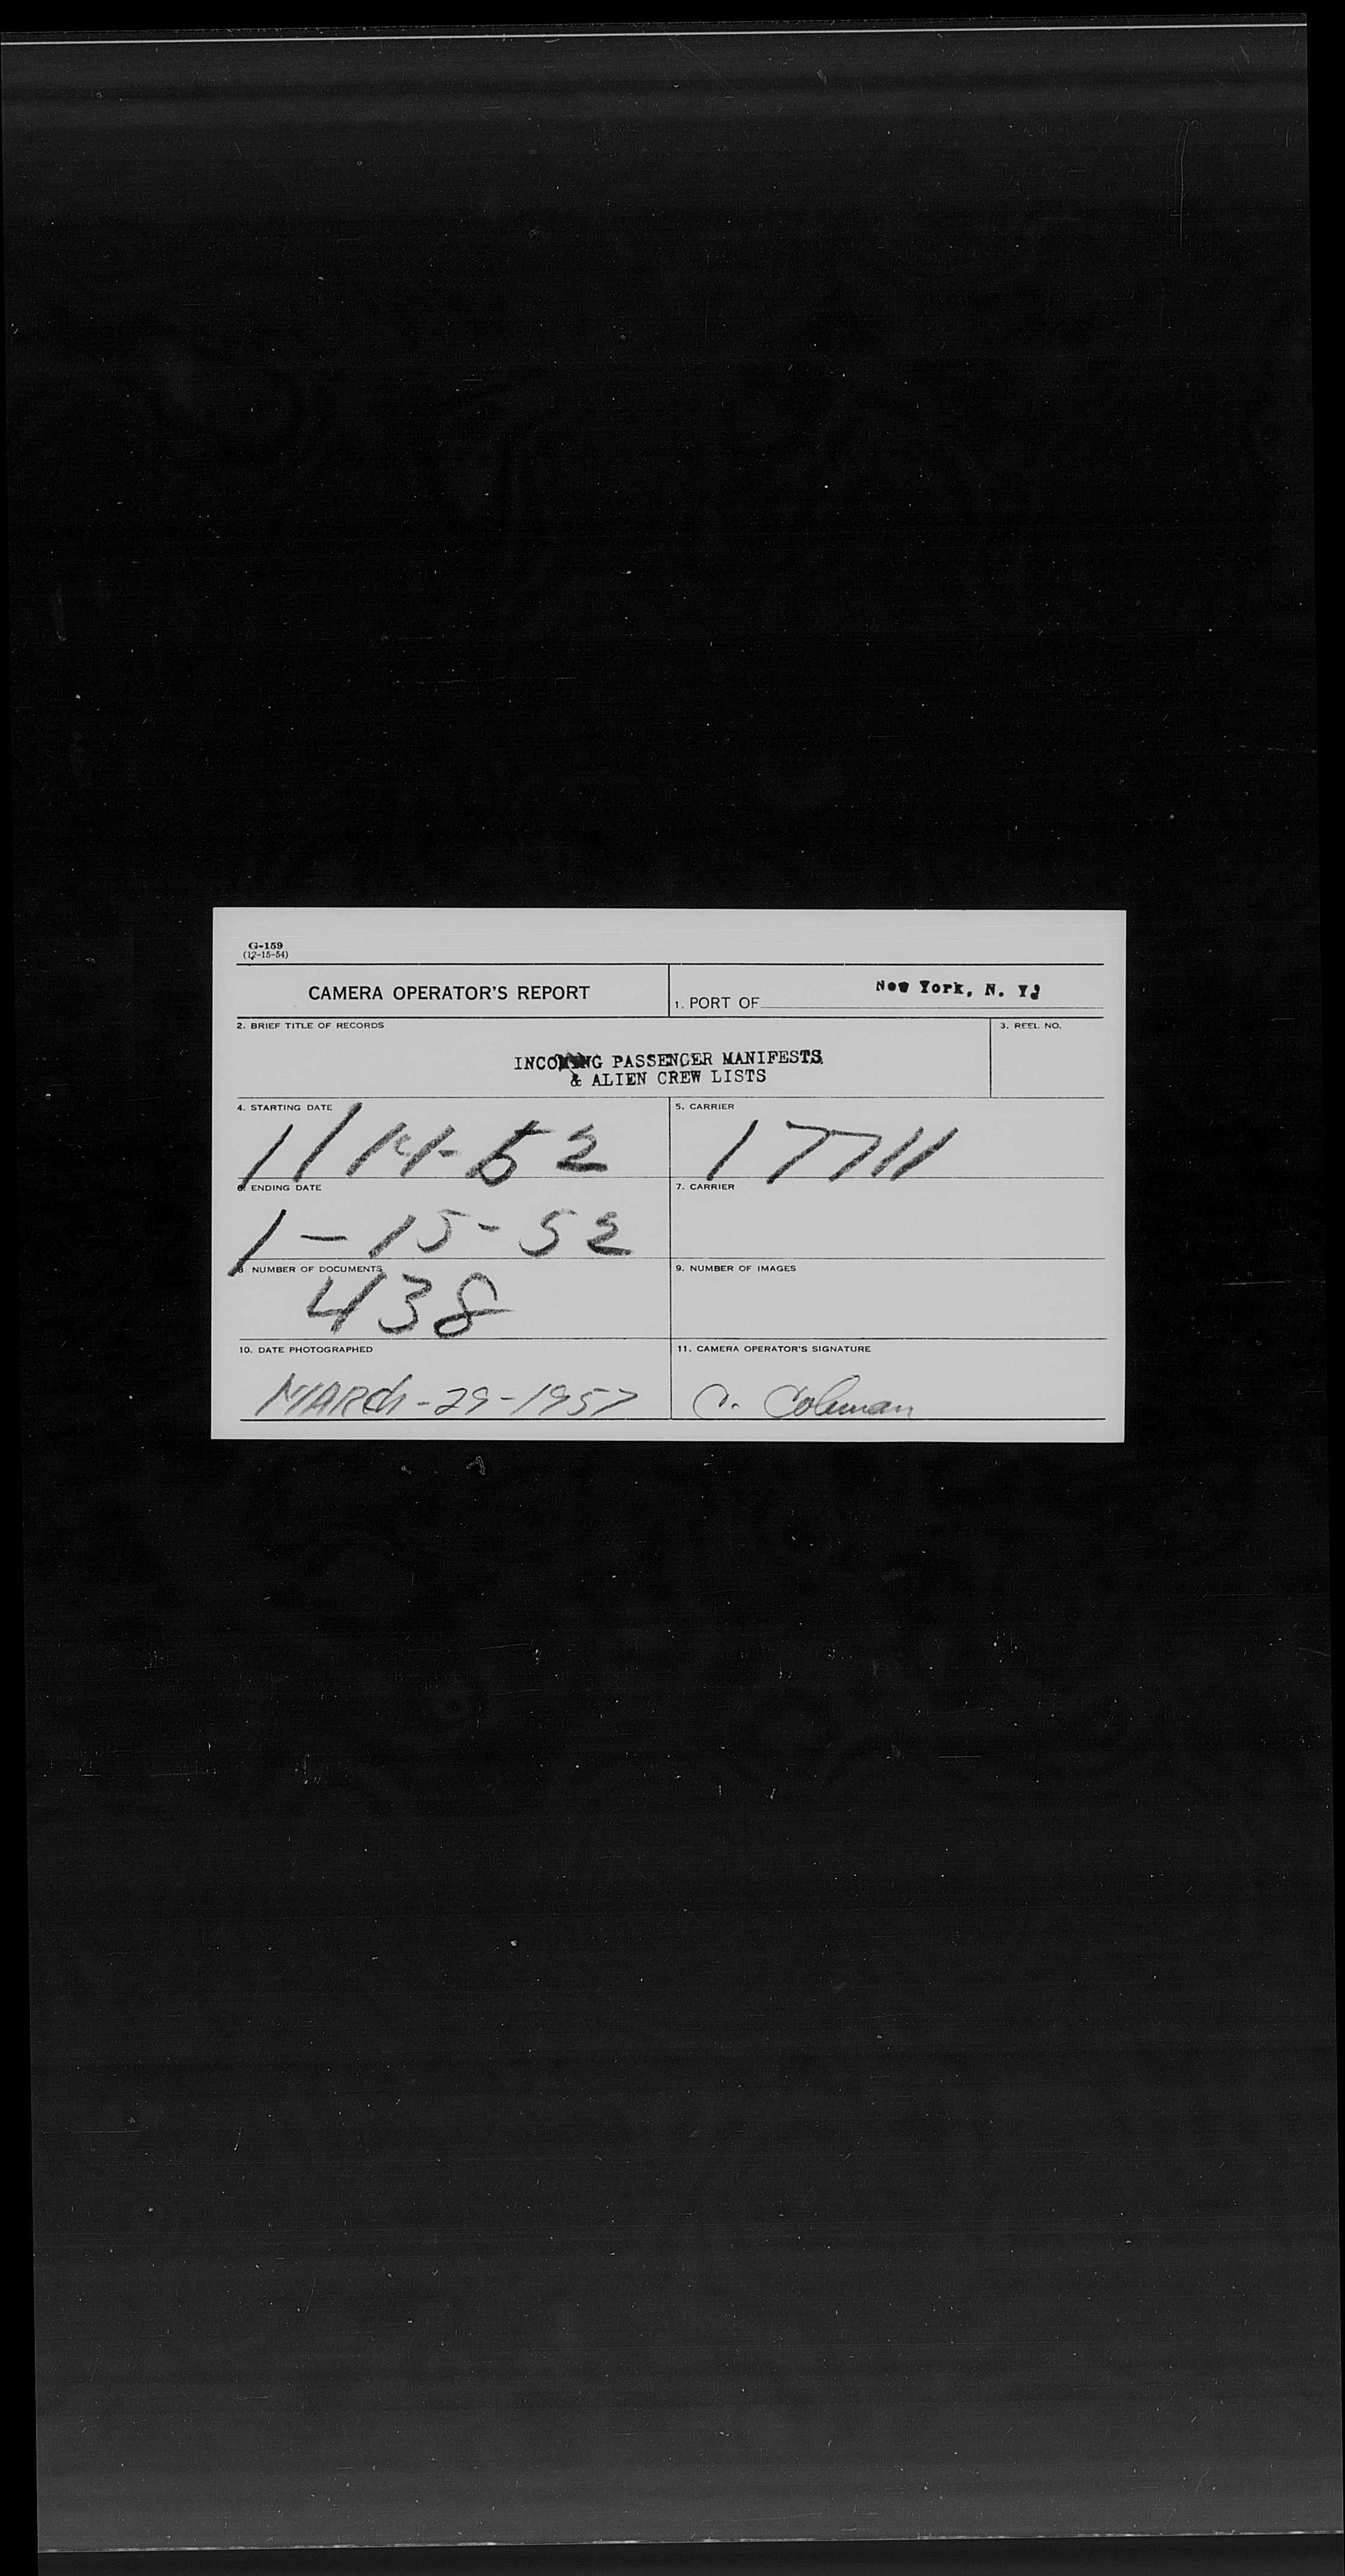 G-159
(12-15-54)
CAMERA OPERATOR'S REPORT
1. PORT OF New York, N. Y.
2. BRIEF TITLE OF RECORDS
3. REEL NO.
INCOMING PASSENGER MANIFESTS
& ALIEN CREW LISTS
4. STARTING DATE
1/14-52
5. CARRIER
17711
6. ENDING DATE
1-15-52
7. CARRIER
8. NUMBER OF DOCUMENTS
438
9. NUMBER OF IMAGES
10. DATE PHOTOGRAPHED
MARch-29-1957
11. CAMERA OPERATOR'S SIGNATURE
C. Coleman